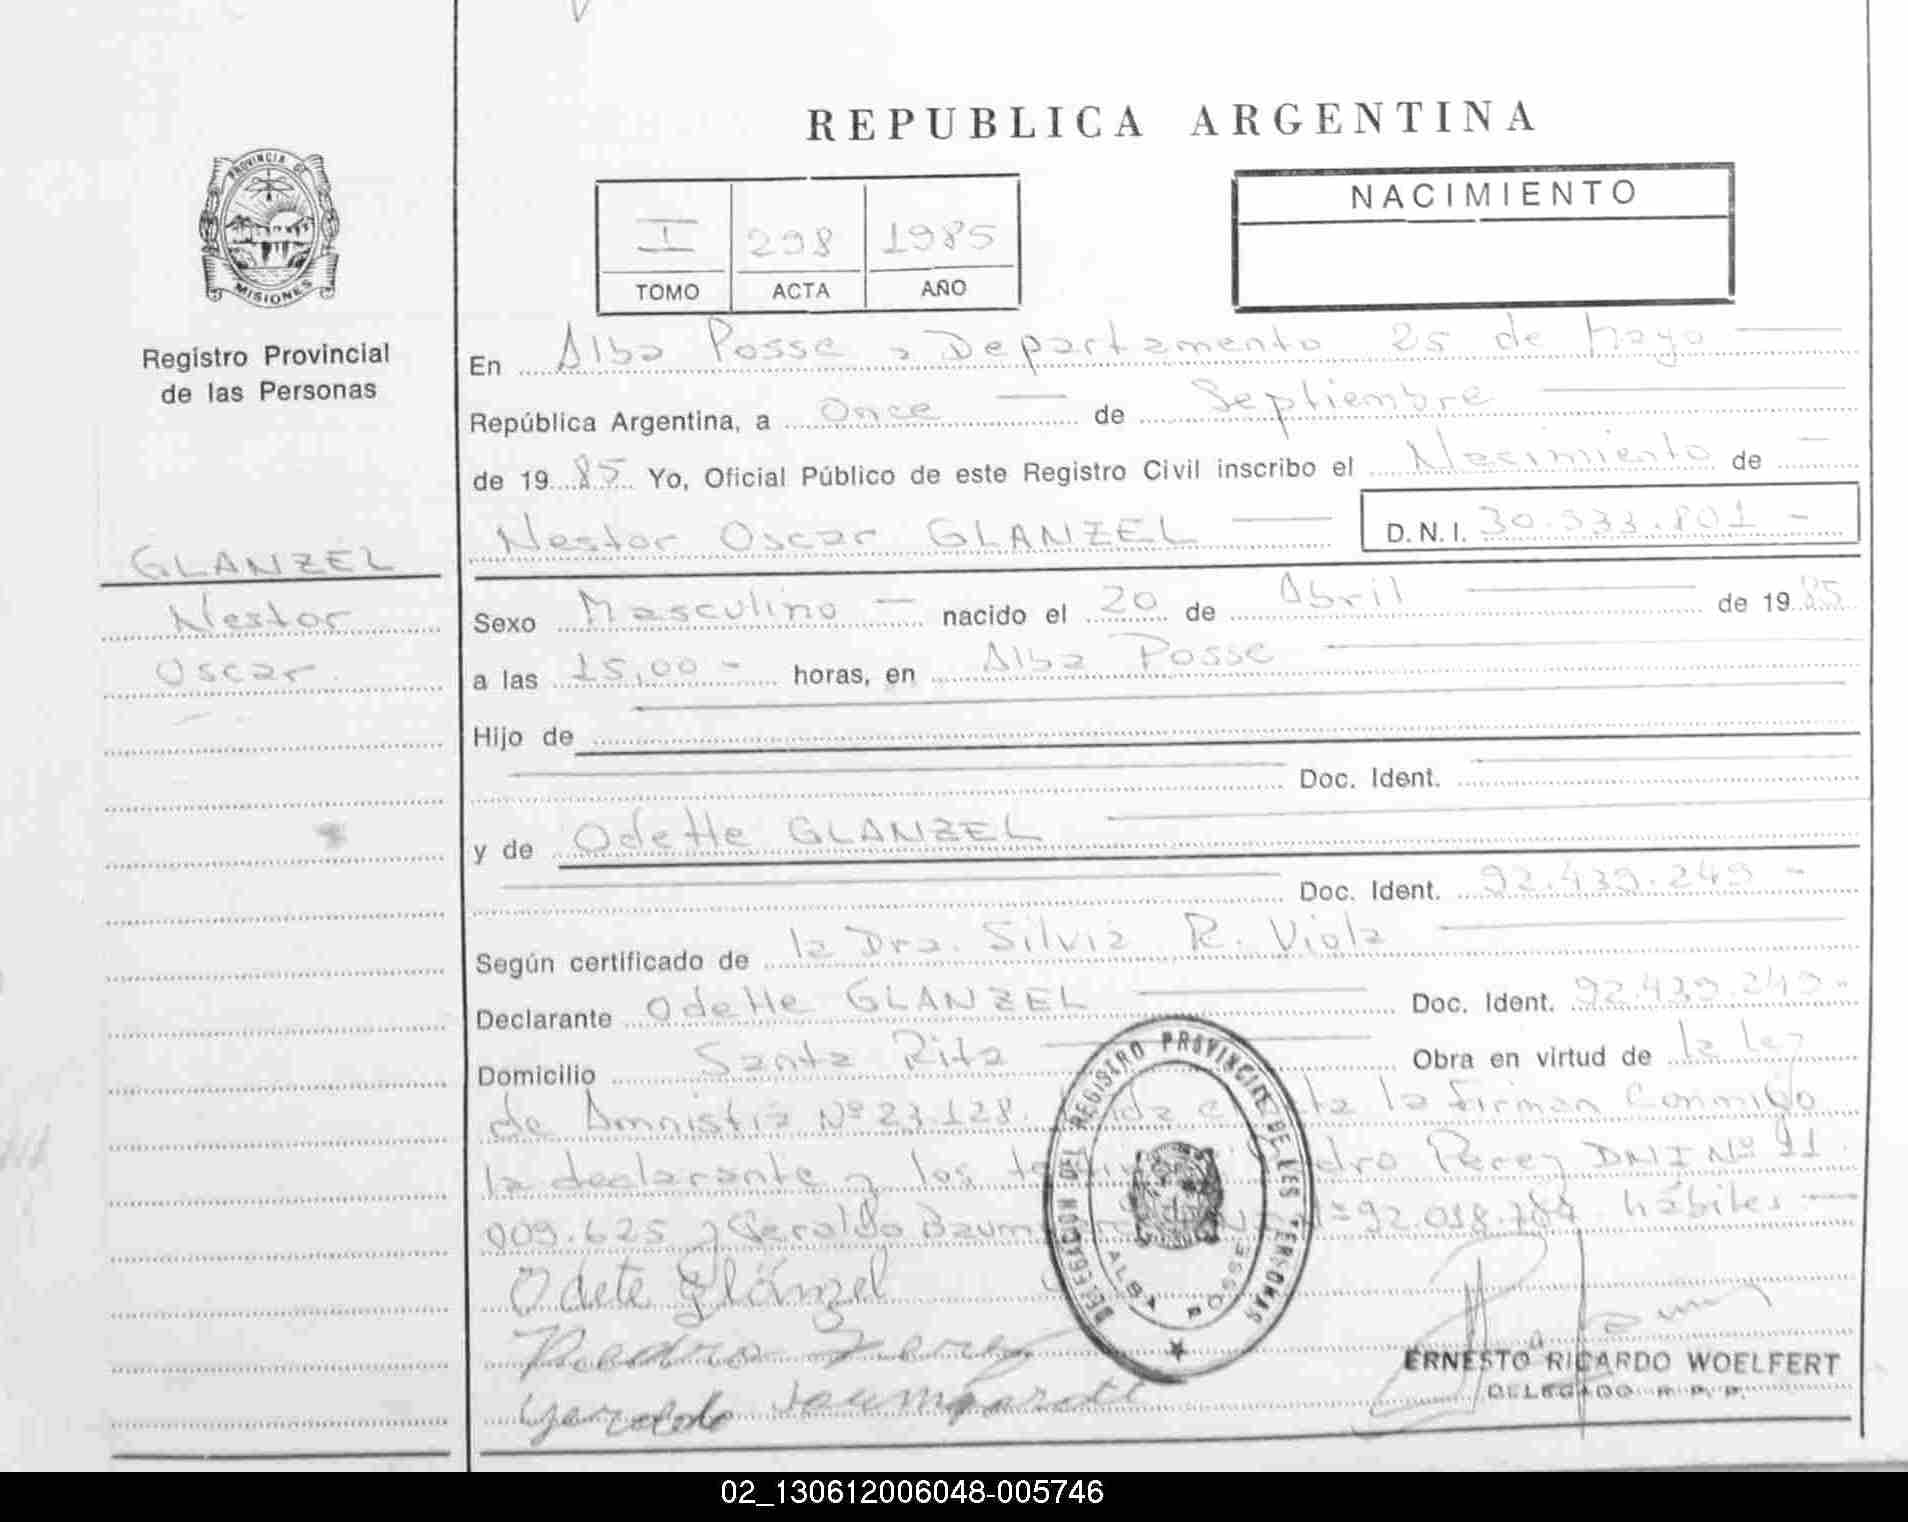 REPUBLICA ARGENTINA
PROVINCIA DE
MISIONES
Registro Provincial
de las Personas
I 298 1985
TOMO ACTA AÑO
NACIMIENTO
En Alba Posse, Departamento 25 de Mayo
República Argentina, a Once de Septiembre
de 1985 Yo, Oficial Público de este Registro Civil inscribo el Nacimiento de
Nestor Oscar GLANZEL D.N.I. 30.533.801 -
GLANZEL
Nestor
Oscar
Sexo Masculino - nacido el 20 de Abril de 1985
a las 15,00 - horas, en Alba Posse
Hijo de
Doc. Ident.
y de Odette GLANZEL
Doc. Ident. 92.439.249 -
Según certificado de la Dra. Silvia R. Viola
Declarante Odette GLANZEL Doc. Ident. 92.439.249 -
Domicilio Santa Rita Obra en virtud de la Ley
de Amnistia Nº 23.128. la firman Conmigo
la declarante y los Pedro Perez DNI Nº 91.
009.625 y Geraldo 92.018.784 hábiles
Odete Glänzel
Pedro Perez
Geraldo Baumgardt
DELEGACION DEL REGISTRO PROVINCIAL DE LAS PERSONAS
ALBA POSSE
ERNESTO RICARDO WOELFERT
DELEGADO R. P. P.
02_130612006048-005746